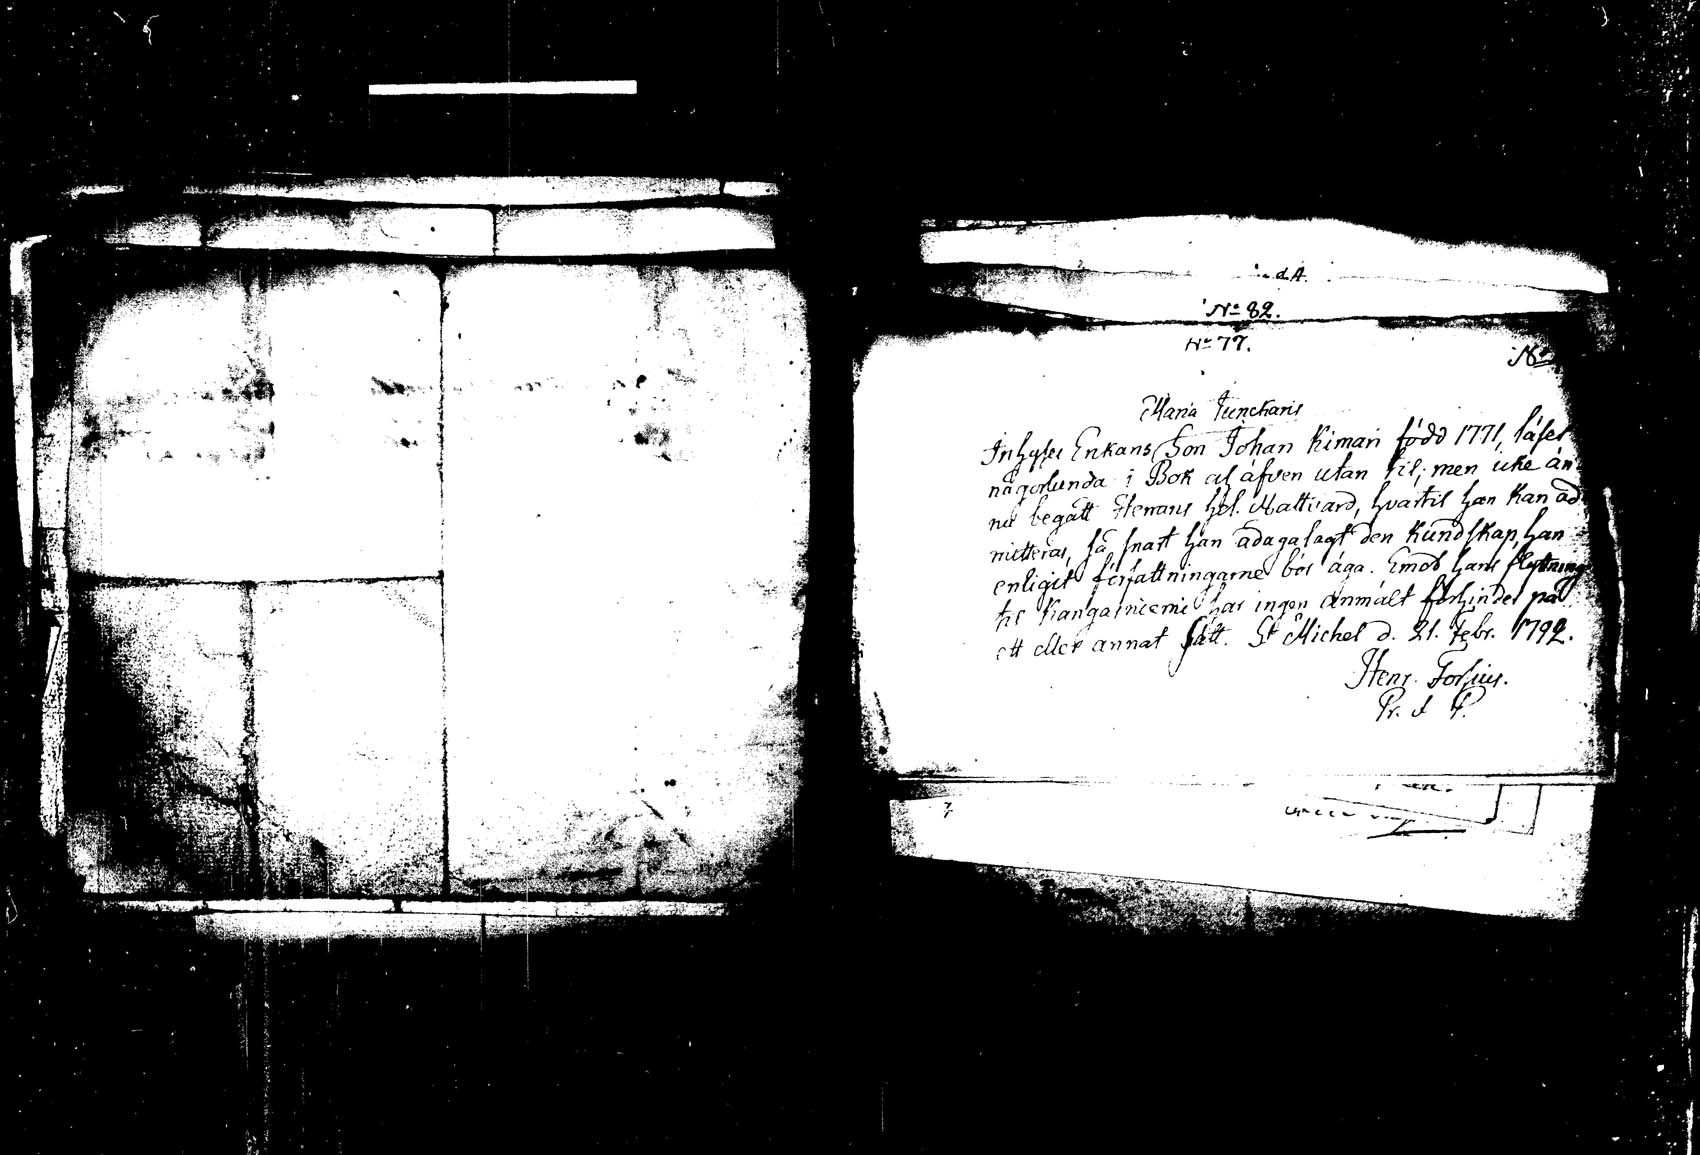 No 82.
No 77.
No
Maria Junckaris
Inhyses Enkans Son Johan Kimari född 1771, läser
någorlunda i Bok ej äfven utan til; men icke än
nu begått Herrans högl. Nattvard, hvartil han kan ad
mitteras, så snart han ådagalagt den Kundskap, han
enligit författningarne bör äga. Emot hans flyttning
til Kangasniemi har ingen anmält förhinder på
ett eller annat sätt. St Michel d. 21. Febr. 1792.
Henr. Forsius.
Pr. & P.